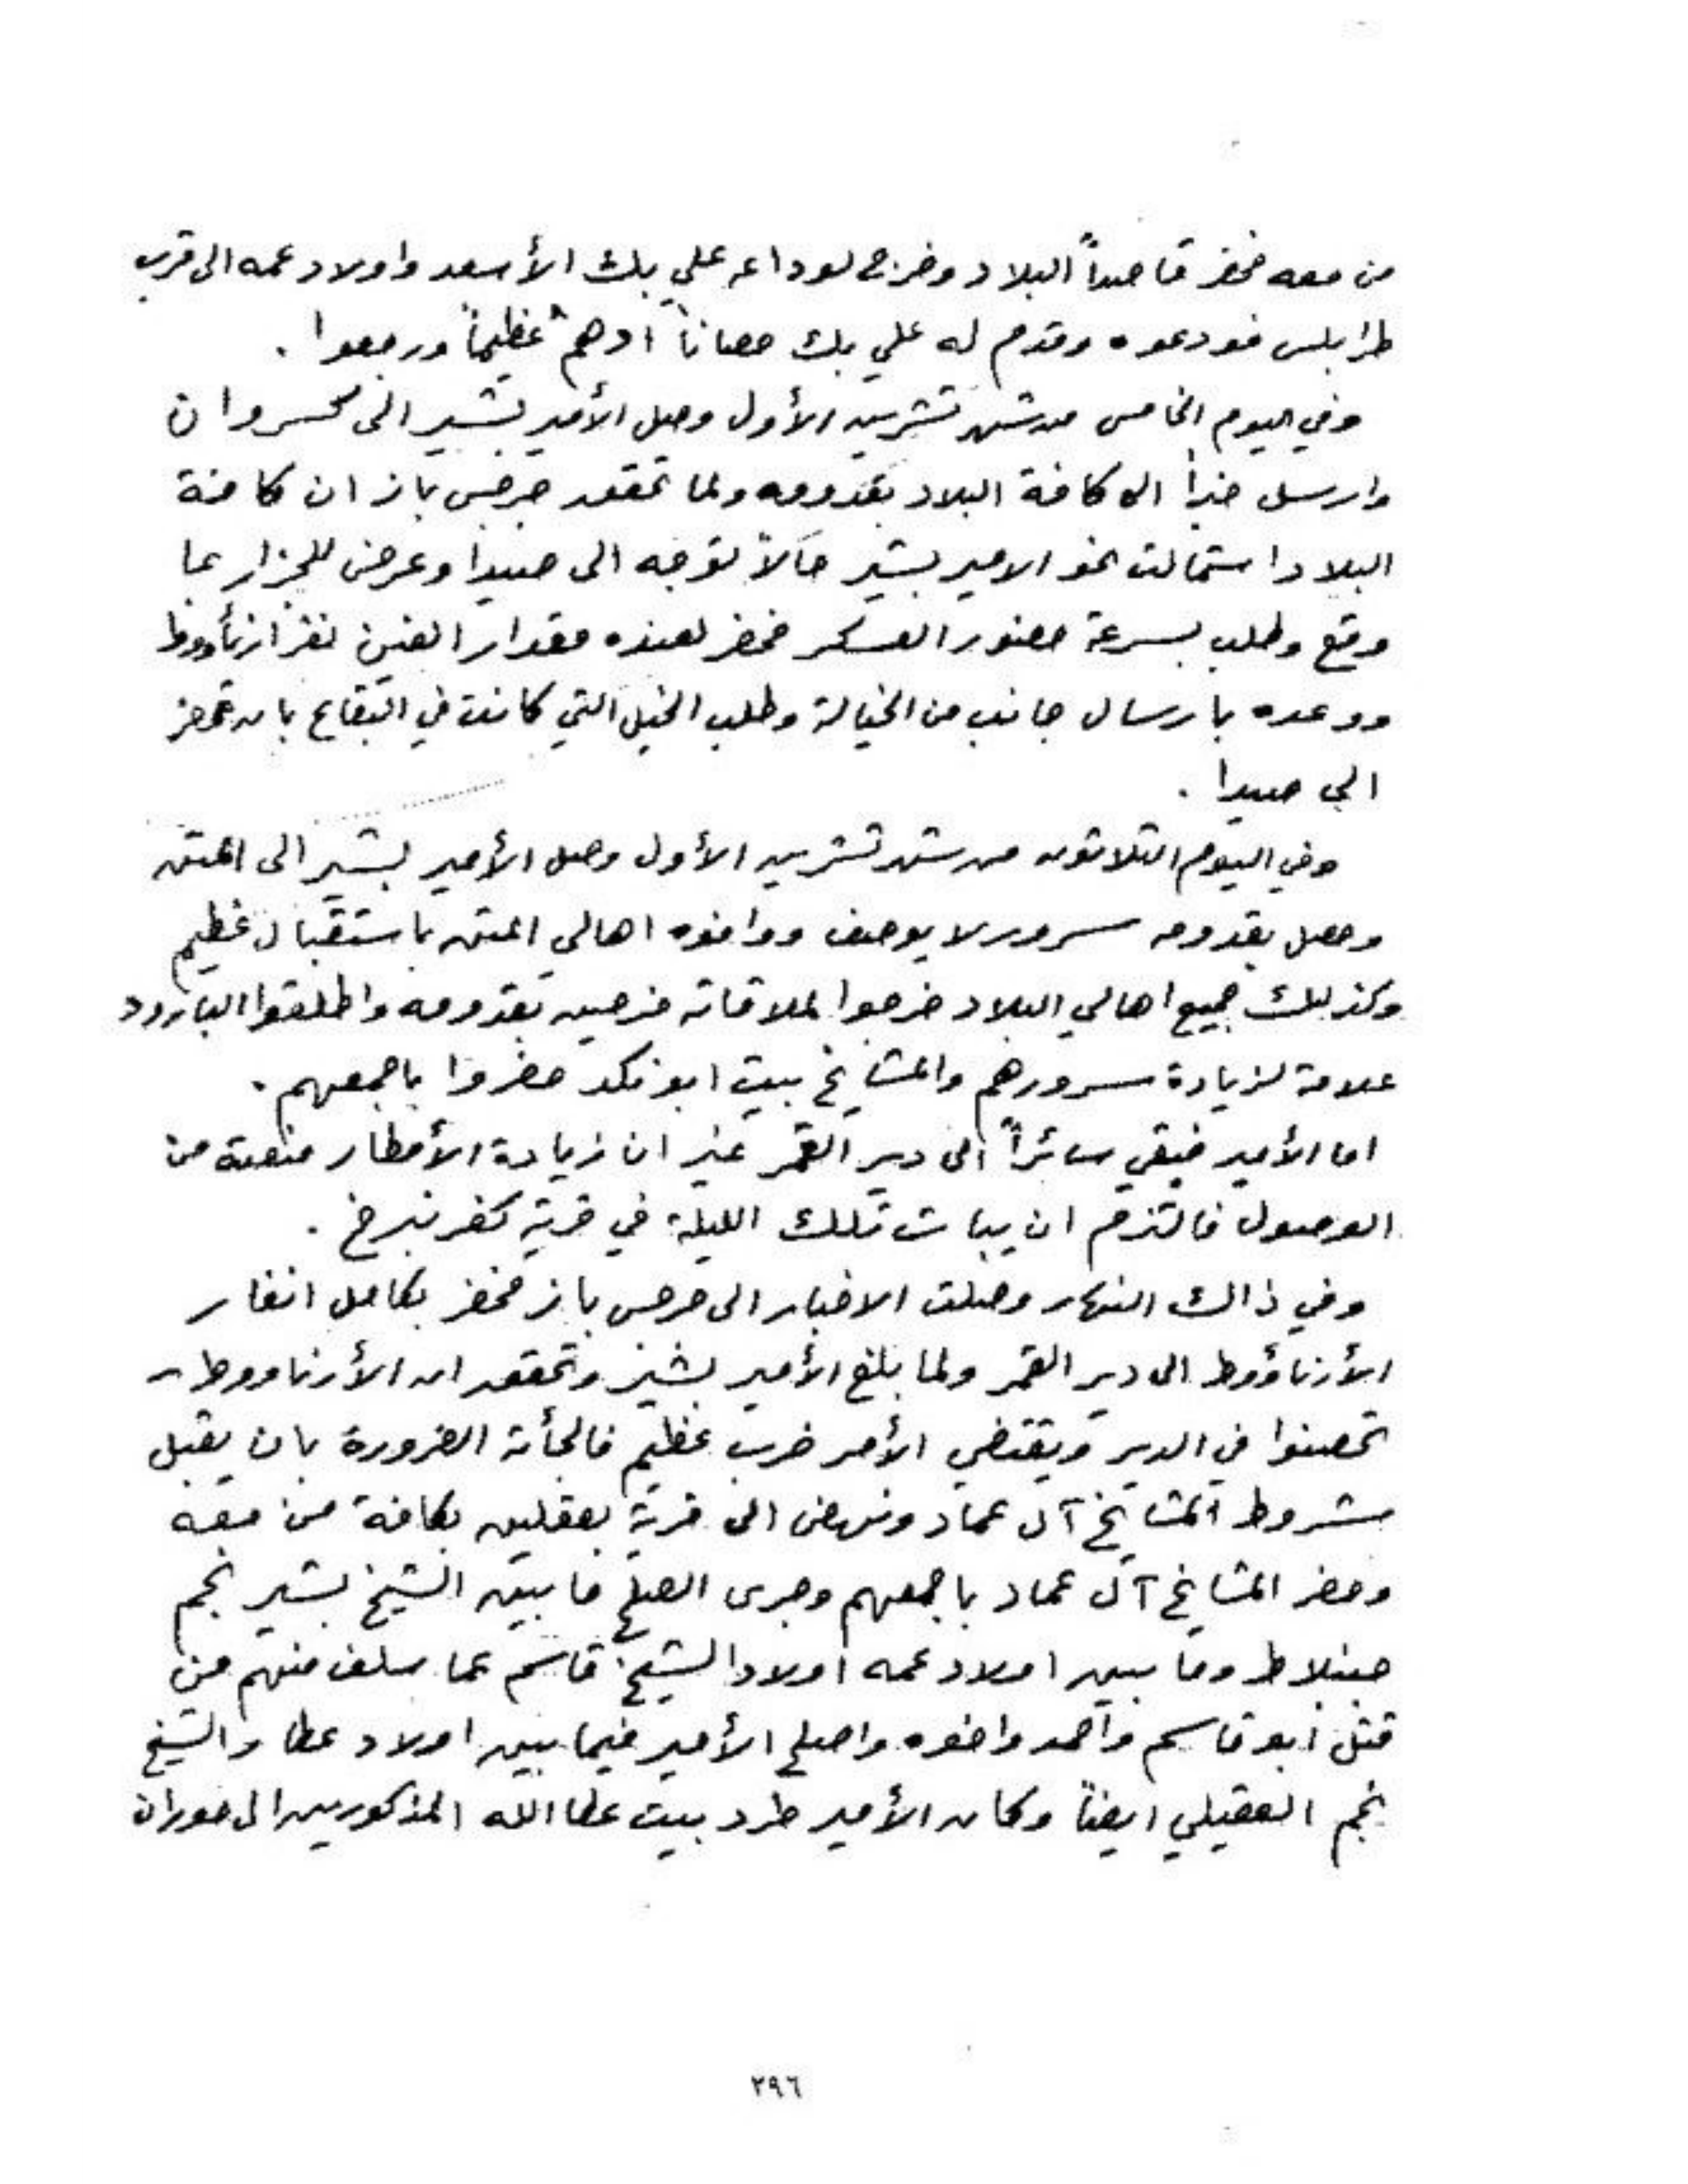 من معه فحضر قاصداً البلاد وخرج لوداعه علي بك الأسعد واولاد عمه الى قرب
طرابلس فودعوه وقدم له علي بك حصاناً ادهم عظيماً ورجعوا .
وفي اليوم الخامس من شهر تشرين الأول وصل الأمير بشير الى كسروان
وارسل خبراً الى كافة البلاد بقدومه ولما تحقق جرجس باز ان كافة
البلاد استمالت نحو الامير بشير حالاً توجه الى صيدا وعرض للجزار عما
وقع وطلب بسرعة حضور العسكر فحضر لعنده مقدار الفين نفر ارنأووط
ووعده بارسال جانب من الخيالة وطلب الخيل التي كانت في البقاع بان تحضر
الى صيدا .
وفي اليوم الثلاثون من شهر تشرين الأول وصل الأمير بشير الى المتن
وحصل بقدومه سرور لا يوصف ووافوه اهالي المتن باستقبال عظيم
وكذلك جميع اهالي البلاد خرجوا لملاقاته فرحين بقدومه واطلقوا البارود
علامة لزيادة سرورهم والمشايخ بيت ابو نكد حضروا باجمعهم .
اما الأمير فبقي سائراً الى دير القمر غير ان زيادة الأمطار منعته من
الوصول فالتزم ان يبات تلك الليلة في قرية كفر نبرخ .
وفي ذالك النهار وصلت الاخبار الى جرجس باز فحضر بكامل انفار
الأرناؤوط الى دير القمر ولما بلغ الأمير بشير وتحقق ان الأرناووط
تحصنوا في الدير ويقتضي الأمر ضرب عظيم فالجأته الضرورة بان يقبل
شروط المشايخ آل عماد ونهض الى قرية بعقلين بكافة من معه
وحضر المشايخ آل عماد باجمعهم وجرى الصلح ما بين الشيخ بشير نجم
جنبلاط وما بين اولاد عمه اولاد الشيخ قاسم عما سلف منهم من
قتل ابو قاسم واحمد واخوه واصلح الأمير فيما بين اولاد عطا والشيخ
نجم العقيلي ايضاً وكان الأمير طرد بيت عطاالله المذكورين الى حوران
٢٩٦